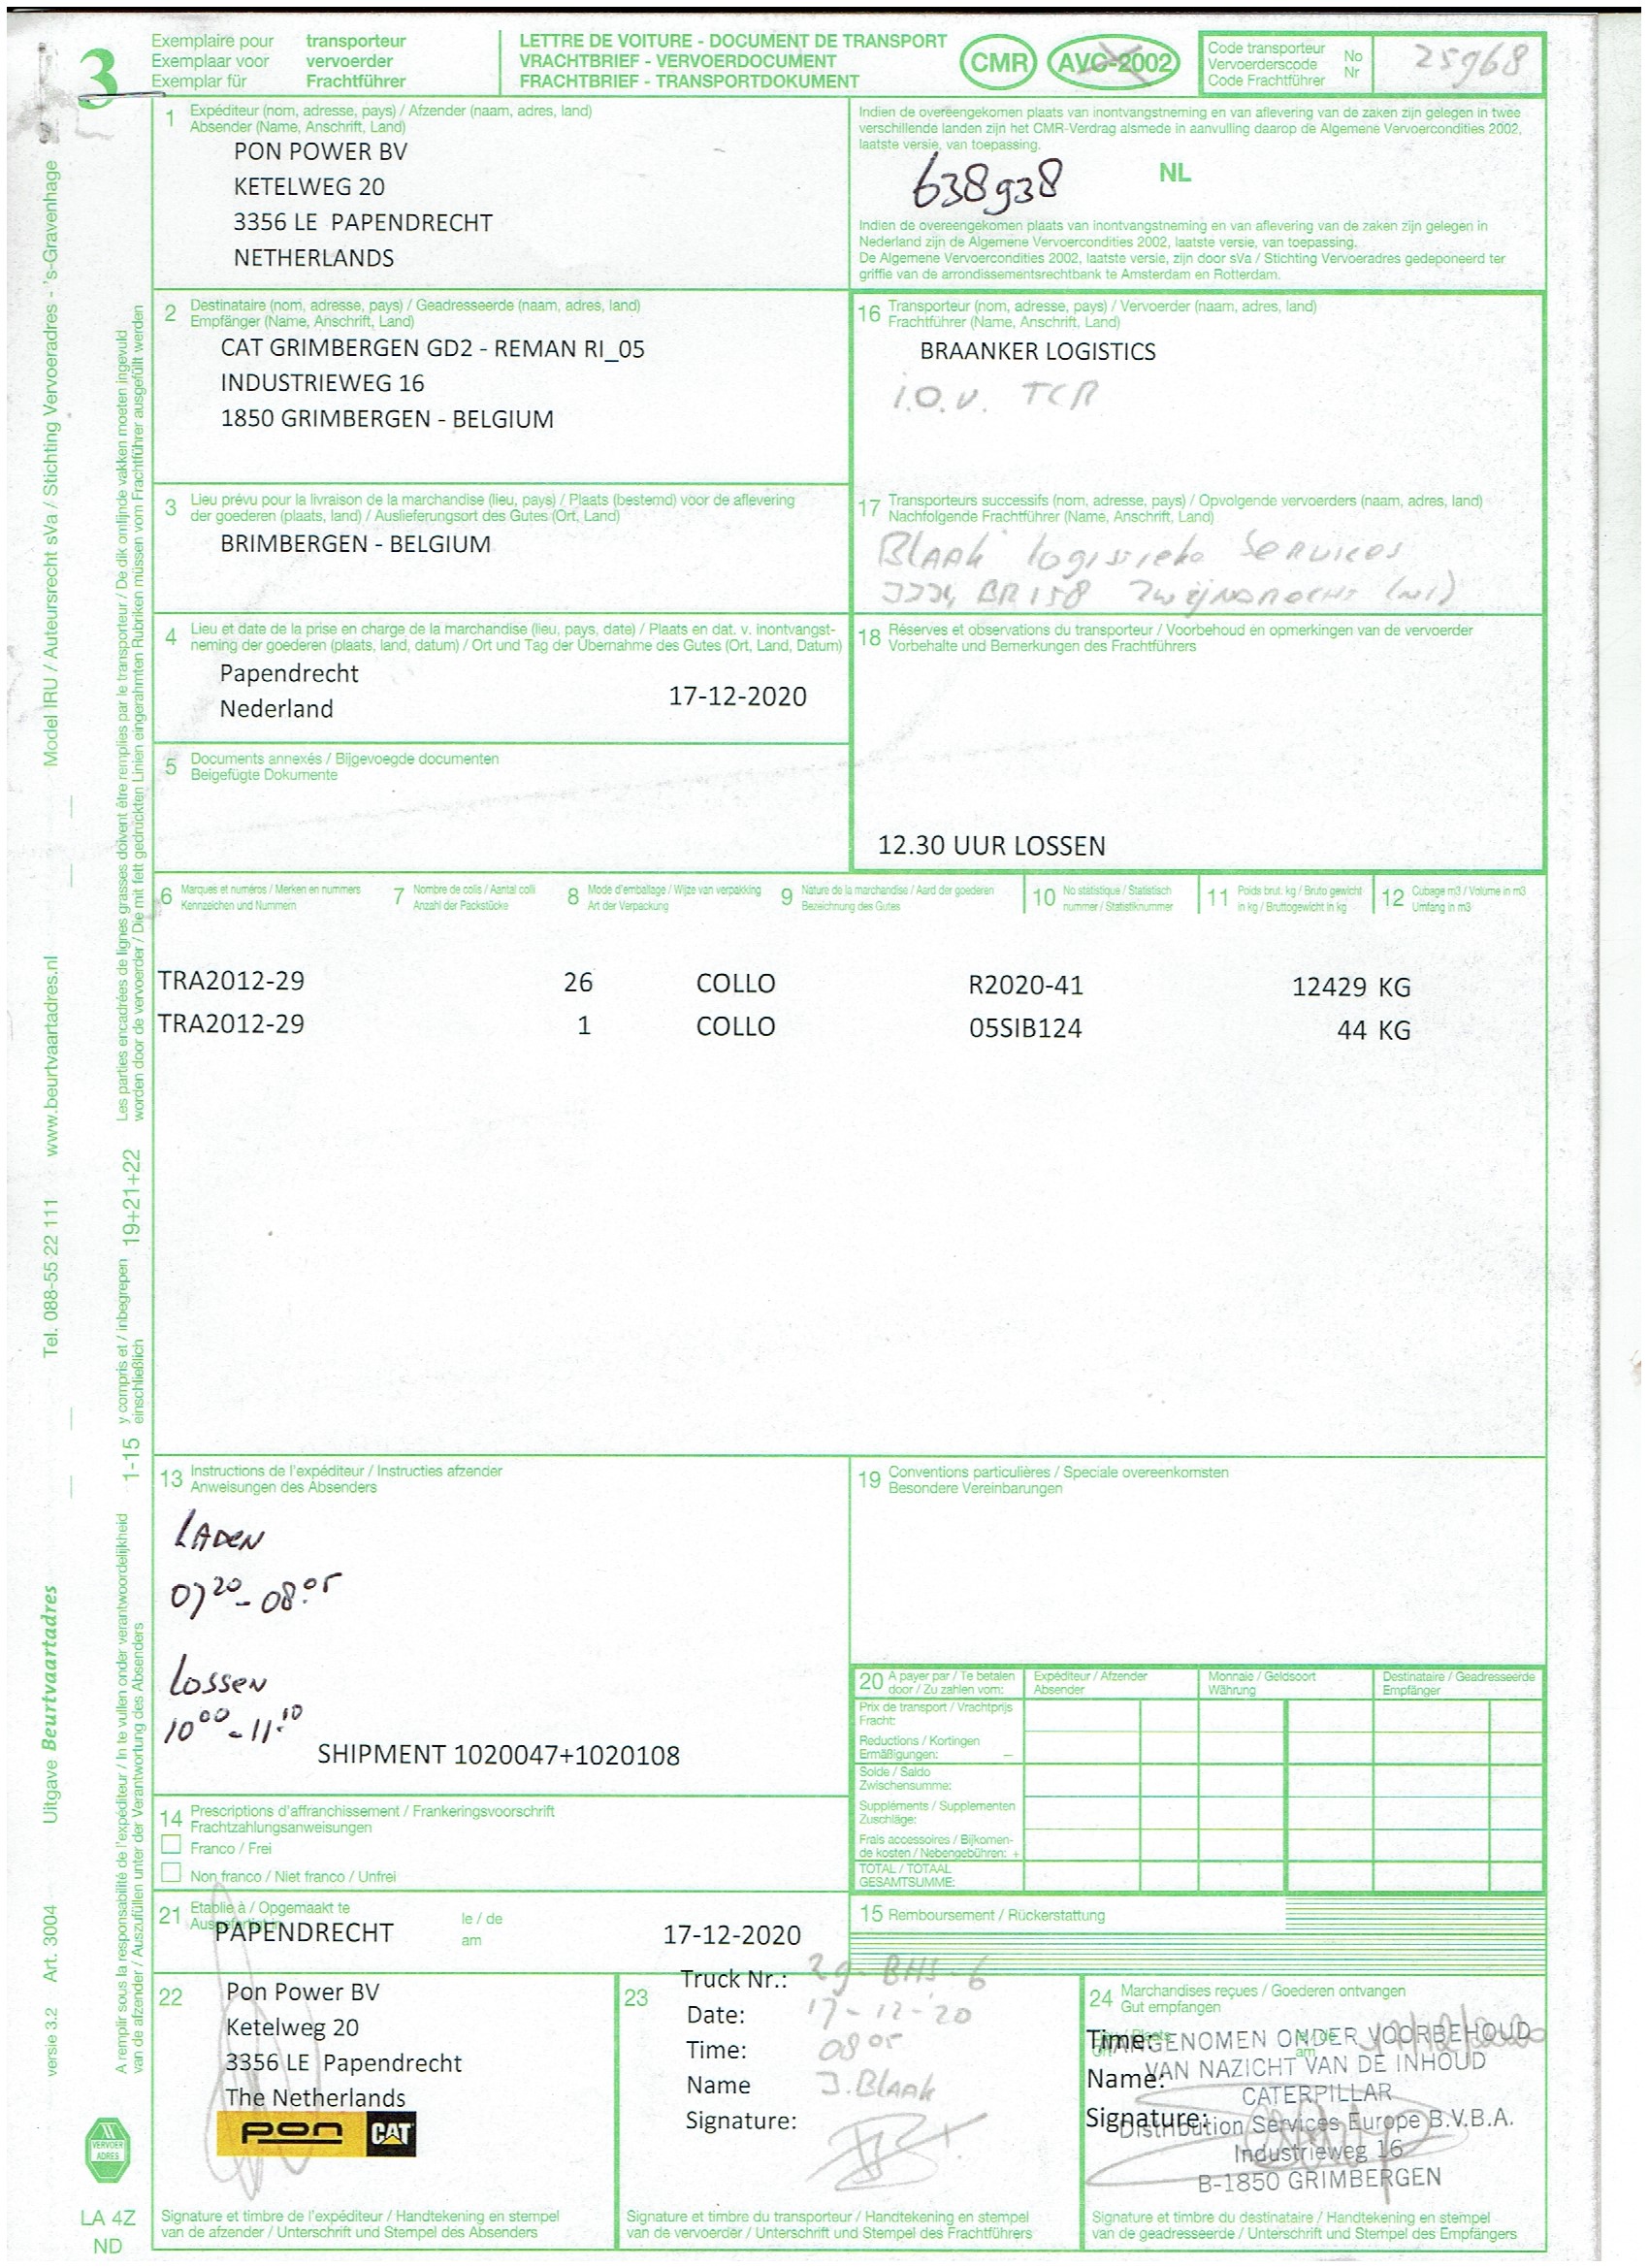 3
Exemplaire pour transporteur
Exemplaar voor vervoerder
Exemplar für Frachtführer
LETTRE DE VOITURE - DOCUMENT DE TRANSPORT
VRACHTBRIEF - VERVOERDOCUMENT
FRACHTBRIEF - TRANSPORTDOKUMENT
CMR
AVC-2002
Code transporteur
Vervoerderscode
Code Frachtführer
No
Nr
25968
1 Expéditeur (nom, adresse, pays) / Afzender (naam, adres, land)
Absender (Name, Anschrift, Land)
PON POWER BV
KETELWEG 20
3356 LE PAPENDRECHT
NETHERLANDS
Indien de overeengekomen plaats van inontvangstneming en van aflevering van de zaken zijn gelegen in twee
verschillende landen zijn het CMR-Verdrag alsmede in aanvulling daarop de Algemene Vervoercondities 2002,
laatste versie, van toepassing.
638938
NL
Indien de overeengekomen plaats van inontvangstneming en van aflevering van de zaken zijn gelegen in
Nederland zijn de Algemene Vervoercondities 2002, laatste versie, van toepassing.
De Algemene Vervoercondities 2002, laatste versie, zijn door sVa / Stichting Vervoeradres gedeponeerd ter
griffie van de arrondissementsrechtbank te Amsterdam en Rotterdam.
2 Destinataire (nom, adresse, pays) / Geadresseerde (naam, adres, land)
Empfänger (Name, Anschrift, Land)
CAT GRIMBERGEN GD2 - REMAN RI_05
INDUSTRIEWEG 16
1850 GRIMBERGEN - BELGIUM
16 Transporteur (nom, adresse, pays) / Vervoerder (naam, adres, land)
Frachtführer (Name, Anschrift, Land)
BRAANKER LOGISTICS
i.o.v. TCR
3 Lieu prévu pour la livraison de la marchandise (lieu, pays) / Plaats (bestemd) voor de aflevering
der goederen (plaats, land) / Auslieferungsort des Gutes (Ort, Land)
BRIMBERGEN - BELGIUM
17 Transporteurs successifs (nom, adresse, pays) / Opvolgende vervoerders (naam, adres, land)
Nachfolgende Frachtführer (Name, Anschrift, Land)
Blaak logistieke Services
3334 BR 158 Zwijndrecht (nl)
4 Lieu et date de la prise en charge de la marchandise (lieu, pays, date) / Plaats en dat. v. inontvangst-
neming der goederen (plaats, land, datum) / Ort und Tag der Übernahme des Gutes (Ort, Land, Datum)
Papendrecht
Nederland
17-12-2020
18 Réserves et observations du transporteur / Voorbehoud en opmerkingen van de vervoerder
Vorbehalte und Bemerkungen des Frachtführers
12.30 UUR LOSSEN
5 Documents annexés / Bijgevoegde documenten
Beigefügte Dokumente
6 Marques et numéros / Merken en nummers
Kennzeichen und Nummern
7 Nombre de colis / Aantal colli
Anzahl der Packstücke
8 Mode d'emballage / Wijze van verpakking
Art der Verpackung
9 Nature de la marchandise / Aard der goederen
Bezeichnung des Gutes
10 No statistique / Statistisch
nummer / Statistiknummer
11 Poids brut. kg / Bruto gewicht
in kg / Bruttogewicht in kg
12 Cubage m3 / Volume in m3
Umfang in m3
TRA2012-29 26 COLLO R2020-41 12429 KG
TRA2012-29 1 COLLO 05SIB124 44 KG
13 Instructions de l'expéditeur / Instructies afzender
Anweisungen des Absenders
Laden
07 20 - 08.05
Lossen
10 00 - 11.10
SHIPMENT 1020047+1020108
19 Conventions particulières / Speciale overeenkomsten
Besondere Vereinbarungen
14 Prescriptions d'affranchissement / Frankeringsvoorschrift
Frachtzahlungsanweisungen
Franco / Frei
Non franco / Niet franco / Unfrei
20 A payer par / Te betalen
door / Zu zahlen vom:
Expéditeur / Afzender
Absender
Monnaie / Geldsoort
Währung
Destinataire / Geadresseerde
Empfänger
Prix de transport / Vrachtprijs
Fracht:
Reductions / Kortingen
Ermäßigungen: –
Solde / Saldo
Zwischensumme:
Suppléments / Supplementen
Zuschläge:
Frais accessoires / Bijkomen-
de kosten / Nebengebühren: +
TOTAL / TOTAAL
GESAMTSUMME:
21 Etablie à / Opgemaakt te
PAPENDRECHT
le / de
am
17-12-2020
15 Remboursement / Rückerstattung
22
Pon Power BV
Ketelweg 20
3356 LE Papendrecht
The Netherlands
pon CAT
Signature et timbre de l'expéditeur / Handtekening en stempel
van de afzender / Unterschrift und Stempel des Absenders
23
Truck Nr.: 29-BHS-6
Date: 17-12-20
Time: 08 05
Name J. Blaak
Signature:
Signature et timbre du transporteur / Handtekening en stempel
van de vervoerder / Unterschrift und Stempel des Frachtführers
24 Marchandises reçues / Goederen ontvangen
Gut empfangen
Time:
Name:
Signature:
AANGENOMEN ONDER VOORBEHOUD
VAN NAZICHT VAN DE INHOUD
CATERPILLAR
Distribution Services Europe B.V.B.A.
Industrieweg 16
B-1850 GRIMBERGEN
Signature et timbre du destinataire / Handtekening en stempel
van de geadresseerde / Unterschrift und Stempel des Empfängers
Model IRU / Auteursrecht sVa / Stichting Vervoeradres - 's-Gravenhage
www.beurtvaartadres.nl
Tel. 088-55 22 111
Uitgave Beurtvaartadres
Art. 3004
versie 3.2
Les parties encadrées de lignes grasses doivent être remplies par le transporteur / De dik omlijnde vakken moeten ingevuld
worden door de vervoerder / Die mit fett gedruckten Linien eingerahmten Rubriken müssen vom Frachtführer ausgefüllt werden
19+21+22
y compris et / inbegrepen
einschließlich
1-15
A remplir sous la responsabilité de l'expéditeur / In te vullen onder verantwoordelijkheid
van de afzender / Auszufüllen unter der Verantwortung des Absenders
VERVOER
ADRES
LA 4Z
ND